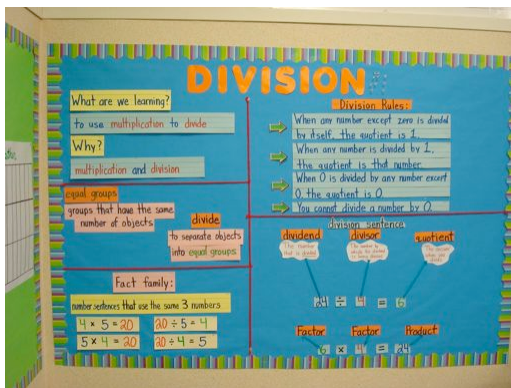 DIVISION
What are we learning?
to use multiplication to divide
Why?
multiplication and division
equal groups
groups that have the same
number of objects
divide
to separate objects
into equal groups
Fact family:
number sentences that use the same 3 numbers
4 × 5 = 20
20 ÷ 5 = 4
5 × 4 = 20
20 ÷ 4 = 5
Division Rules:
When any number except zero is divided
by itself, the quotient is 1.
When any number is divided by 1,
the quotient is that number.
When 0 is divided by any number except
0, the quotient is 0
You cannot divide a number by 0.
division sentence
dividend
divisor
quotient
The number
that is divided
24 ÷ 4 = 6
Factor
Factor
Product
6 × 4 = 24